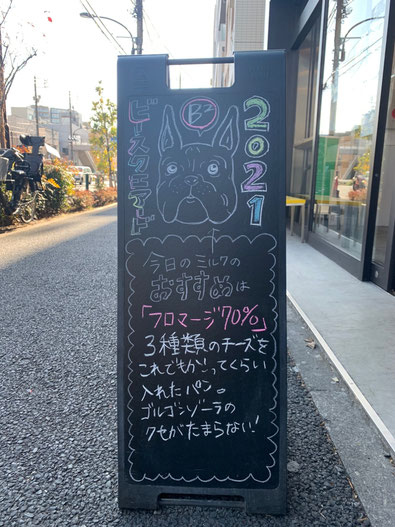 ビースクエアード
B²
2021
今日のミルクの
おすすめは
「フロマージ70%」
3種類のチーズを
これでもかってくらい
入れたパン。
ゴルゴンゾーラの
クセがたまらない!